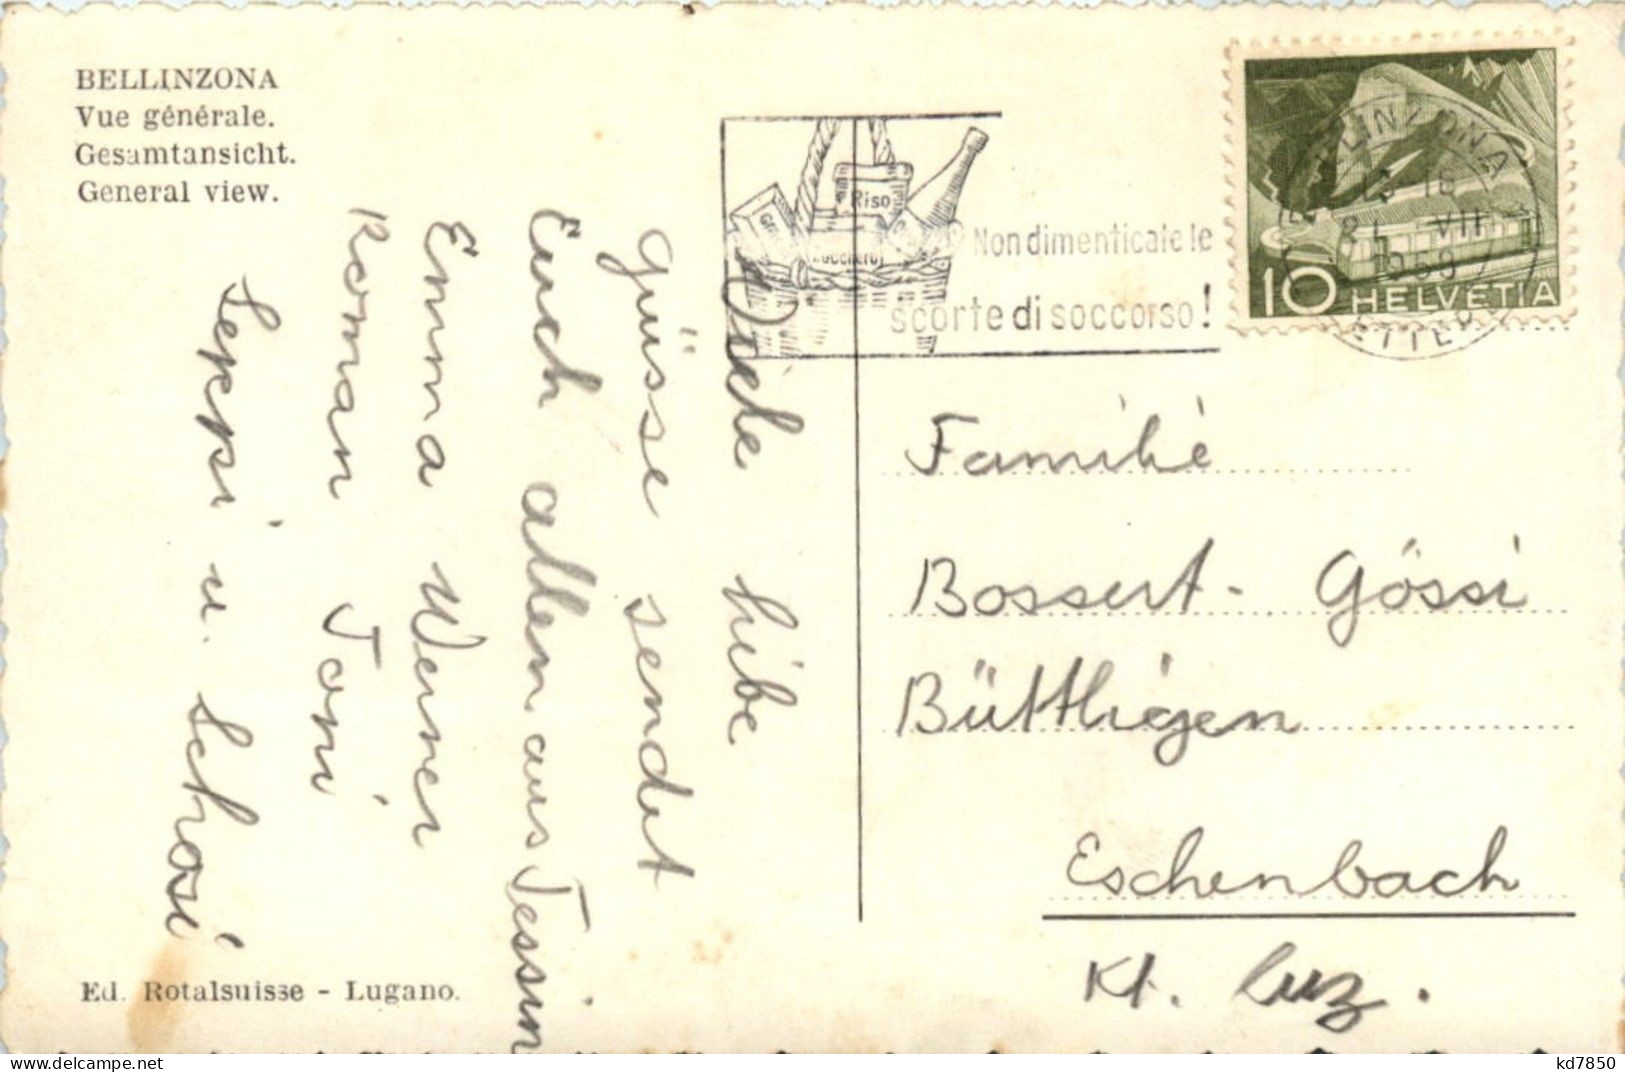 BELLINZONA
Vue générale.
Gesamtansicht.
General view.
Riso
Non dimenticate le
scorte di soccorso!
BELLINZONA
VII
1959
LETTERE
10 HELVETIA
Viele liebe
Grüsse sendet
Euch allen aus Tessin
Emma Werner
Roman Toni
Seppi u. Schosi
Familie
Bossert - Gössi
Büttligen
Eschenbach
Kt. Luz.
Ed. Rotalsuisse - Lugano.
kd7850